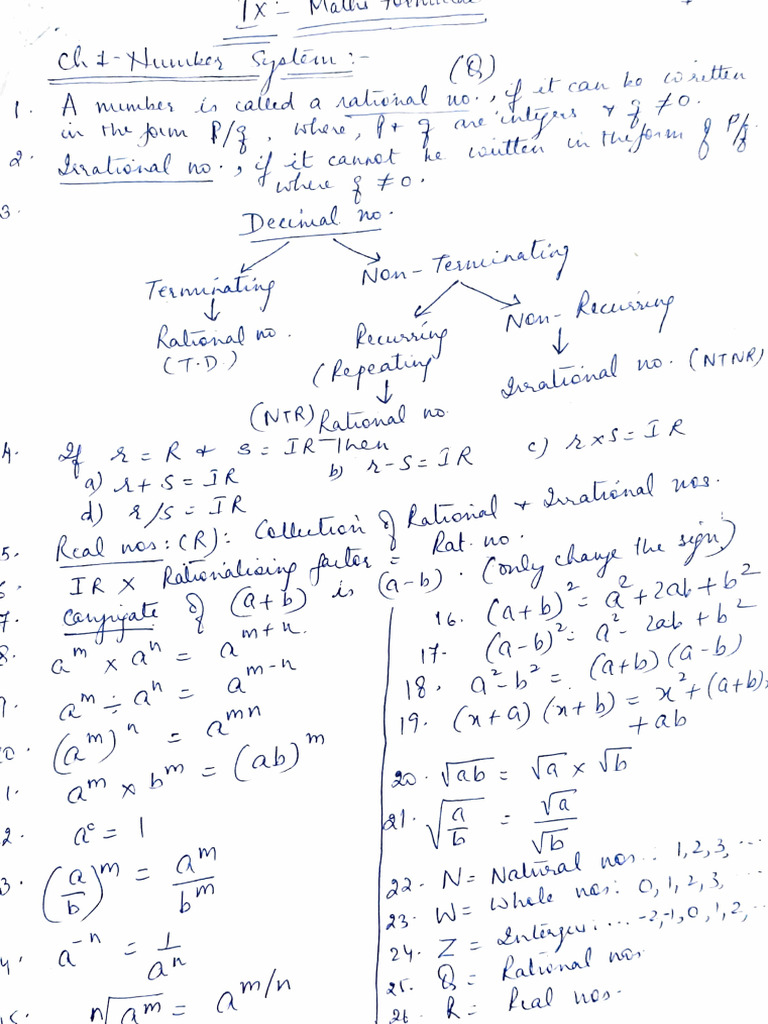 Ix :- Maths Formulae
Ch 1 - Number System :-
1. A number is called a rational no. (Q), if it can be written
in the form P/q, where, P + q are integers + q ≠ 0.
2. Irrational no., if it cannot be written in the form of P/q
where q ≠ 0.
3.
Decimal no.
Terminating Non-Terminating
Rational no. (T.D) Recurring (Repeating Non-Recurring
(NTR) Rational no. Irrational no. (NTNR)
4. If r = R + s = IR Then
a) r + s = IR b) r - s = IR c) r x s = IR
d) r/s = IR
5. Real nos: (R): Collection of Rational + Irrational nos.
6 IR × Rationalising factor = Rat. no.
7. Conjugate of (a+b) is (a-b). (only change the sign)
8. a^m × a^n = a^{m+n}.
9. a^m ÷ a^n = a^{m-n}
0. (a^m)^n = a^{mn}
1. a^m × b^m = (ab)^m
2. a^0 = 1
3. (a/b)^m = a^m/b^m
4. a^{-n} = 1/a^n
15. n√a^m = a^{m/n}
16. (a+b)^2 = a^2 + 2ab + b^2
17. (a-b)^2 = a^2 - 2ab + b^2
18. a^2 - b^2 = (a+b) (a-b)
19. (x+a) (x+b) = x^2 + (a+b)
+ ab
20. √ab = √a × √b
21. √a/b = √a/√b
22. N = Natural nos.: 1, 2, 3, ...
23. W = Whole nos: 0, 1, 2, 3, ...
24. Z = Interger: ... -2, -1, 0, 1, 2, ...
25. Q = Rational nos.
26. R = Real nos.